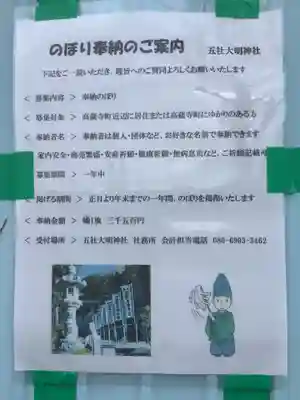 のぼり奉納のご案内 五社大明神社
下記をご一読いただき、趣旨へのご賛同よろしくお願いいたします
< 募集内容 > 奉納のぼり
< 募集対象 > 高蔵寺町近辺に居住または高蔵寺町にゆかりのある方
< 奉納者名 > 奉納者は個人・団体など、お好きな名前で奉納できます
家内安全・商売繁盛・安産祈願・健康祈願・無病息災など、ご祈願記載可
募集期間 > 一年中
< 掲げる期間 > 正月より年末までの一年間、のぼりを掲揚いたします
< 奉納金額 > 幟1旗 三千五百円
< 受付場所 > 五社大明神社 社務所 会計担当電話 080-6903-3462